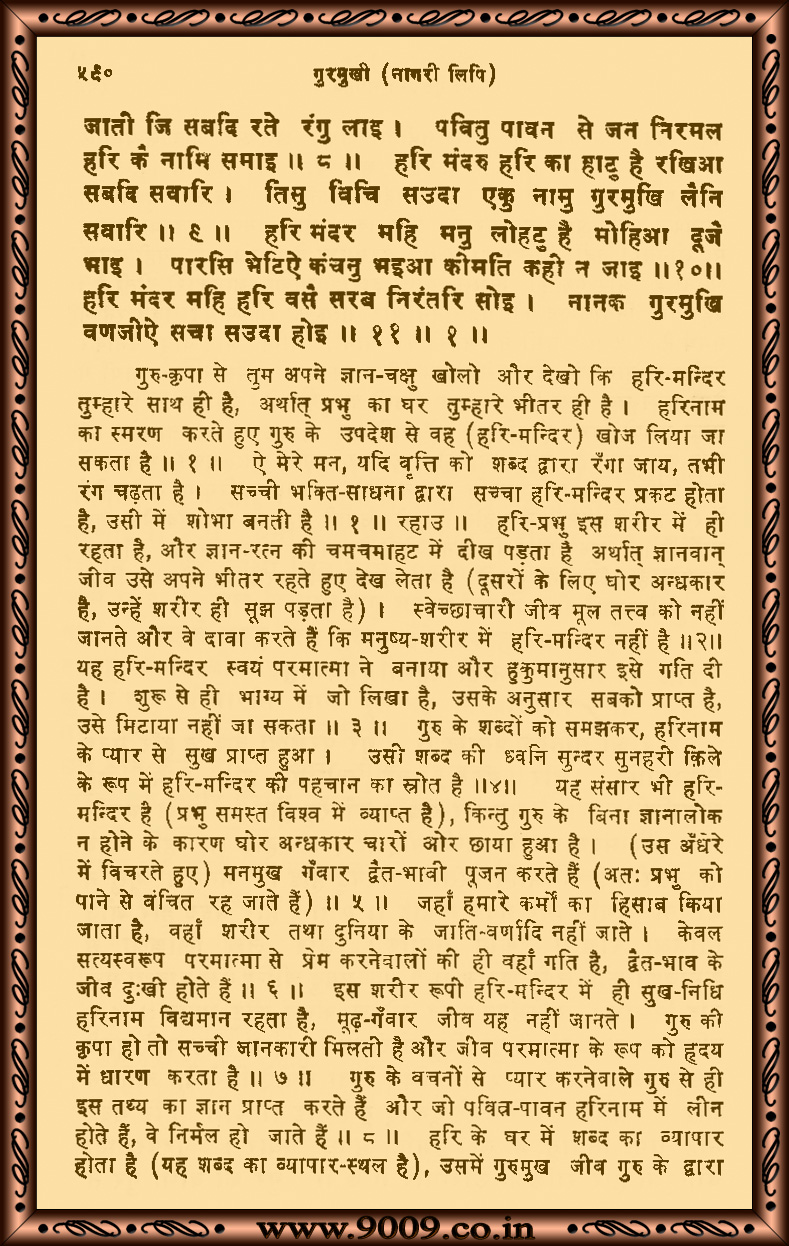 ५९०
गुरमुखी (नागरी लिपि)
जाती जि सबदि रते रंगु लाइ । पवितु पावन से जन निरमल
हरि कै नामि समाइ ॥ ८ ॥ हरि मंदरु हरि का हाटु है रखिआ
सबदि सवारि । तिसु विचि सउदा एकु नामु गुरमुखि लैनि
सवारि ॥ ९ ॥ हरि मंदर महि मनु लोहटु है मोहिआ दूजै
भाइ । पारसि भेटिऐ कंचनु भइआ कीमति कही न जाइ ॥१०॥
हरि मंदर महि हरि वसै सरब निरंतरि सोइ । नानक गुरमुखि
वणजीऐ सचा सउदा होइ ॥ ११ ॥ १ ॥
गुरु-कृपा से तुम अपने ज्ञान-चक्षु खोलो और देखो कि हरि-मन्दिर
तुम्हारे साथ ही है, अर्थात् प्रभु का घर तुम्हारे भीतर ही है । हरिनाम
का स्मरण करते हुए गुरु के उपदेश से वह (हरि-मन्दिर) खोज लिया जा
सकता है ॥ १ ॥ ऐ मेरे मन, यदि वृत्ति को शब्द द्वारा रँगा जाय, तभी
रंग चढ़ता है । सच्ची भक्ति-साधना द्वारा सच्चा हरि-मन्दिर प्रकट होता
है, उसी में शोभा बनती है ॥ १ ॥ रहाउ ॥ हरि-प्रभु इस शरीर में ही
रहता है, और ज्ञान-रत्न की चमचमाहट में दीख पड़ता है अर्थात् ज्ञानवान्
जीव उसे अपने भीतर रहते हुए देख लेता है (दूसरों के लिए घोर अन्धकार
है, उन्हें शरीर ही सूझ पड़ता है) । स्वेच्छाचारी जीव मूल तत्त्व को नहीं
जानते और वे दावा करते हैं कि मनुष्य-शरीर में हरि-मन्दिर नहीं है ॥२॥
यह हरि-मन्दिर स्वयं परमात्मा ने बनाया और हुकुमानुसार इसे गति दी
है । शुरू से ही भाग्य में जो लिखा है, उसके अनुसार सबको प्राप्त है,
उसे मिटाया नहीं जा सकता ॥ ३ ॥ गुरु के शब्दों को समझकर, हरिनाम
के प्यार से सुख प्राप्त हुआ । उसी शब्द की ध्वनि सुन्दर सुनहरी क़िले
के रूप में हरि-मन्दिर की पहचान का स्रोत है ॥४॥ यह संसार भी हरि-
मन्दिर है (प्रभु समस्त विश्व में व्याप्त है), किन्तु गुरु के बिना ज्ञानालोक
न होने के कारण घोर अन्धकार चारों ओर छाया हुआ है । (उस अँधेरे
में विचरते हुए) मनमुख गँवार द्वैत-भावी पूजन करते हैं (अतः प्रभु को
पाने से वंचित रह जाते हैं) ॥ ५ ॥ जहाँ हमारे कर्मों का हिसाब किया
जाता है, वहाँ शरीर तथा दुनिया के जाति-वर्णादि नहीं जाते । केवल
सत्यस्वरूप परमात्मा से प्रेम करनेवालों की ही वहाँ गति है, द्वैत-भाव के
जीव दुःखी होते हैं ॥ ६ ॥ इस शरीर रूपी हरि-मन्दिर में ही सुख-निधि
हरिनाम विद्यमान रहता है, मूढ़-गँवार जीव यह नहीं जानते । गुरु की
कृपा हो तो सच्ची जानकारी मिलती है और जीव परमात्मा के रूप को हृदय
में धारण करता है ॥ ७ ॥ गुरु के वचनों से प्यार करनेवाले गुरु से ही
इस तथ्य का ज्ञान प्राप्त करते हैं और जो पवित्र-पावन हरिनाम में लीन
होते हैं, वे निर्मल हो जाते हैं ॥ ८ ॥ हरि के घर में शब्द का व्यापार
होता है (यह शब्द का व्यापार-स्थल है), उसमें गुरुमुख जीव गुरु के द्वारा
www.9009.co.in